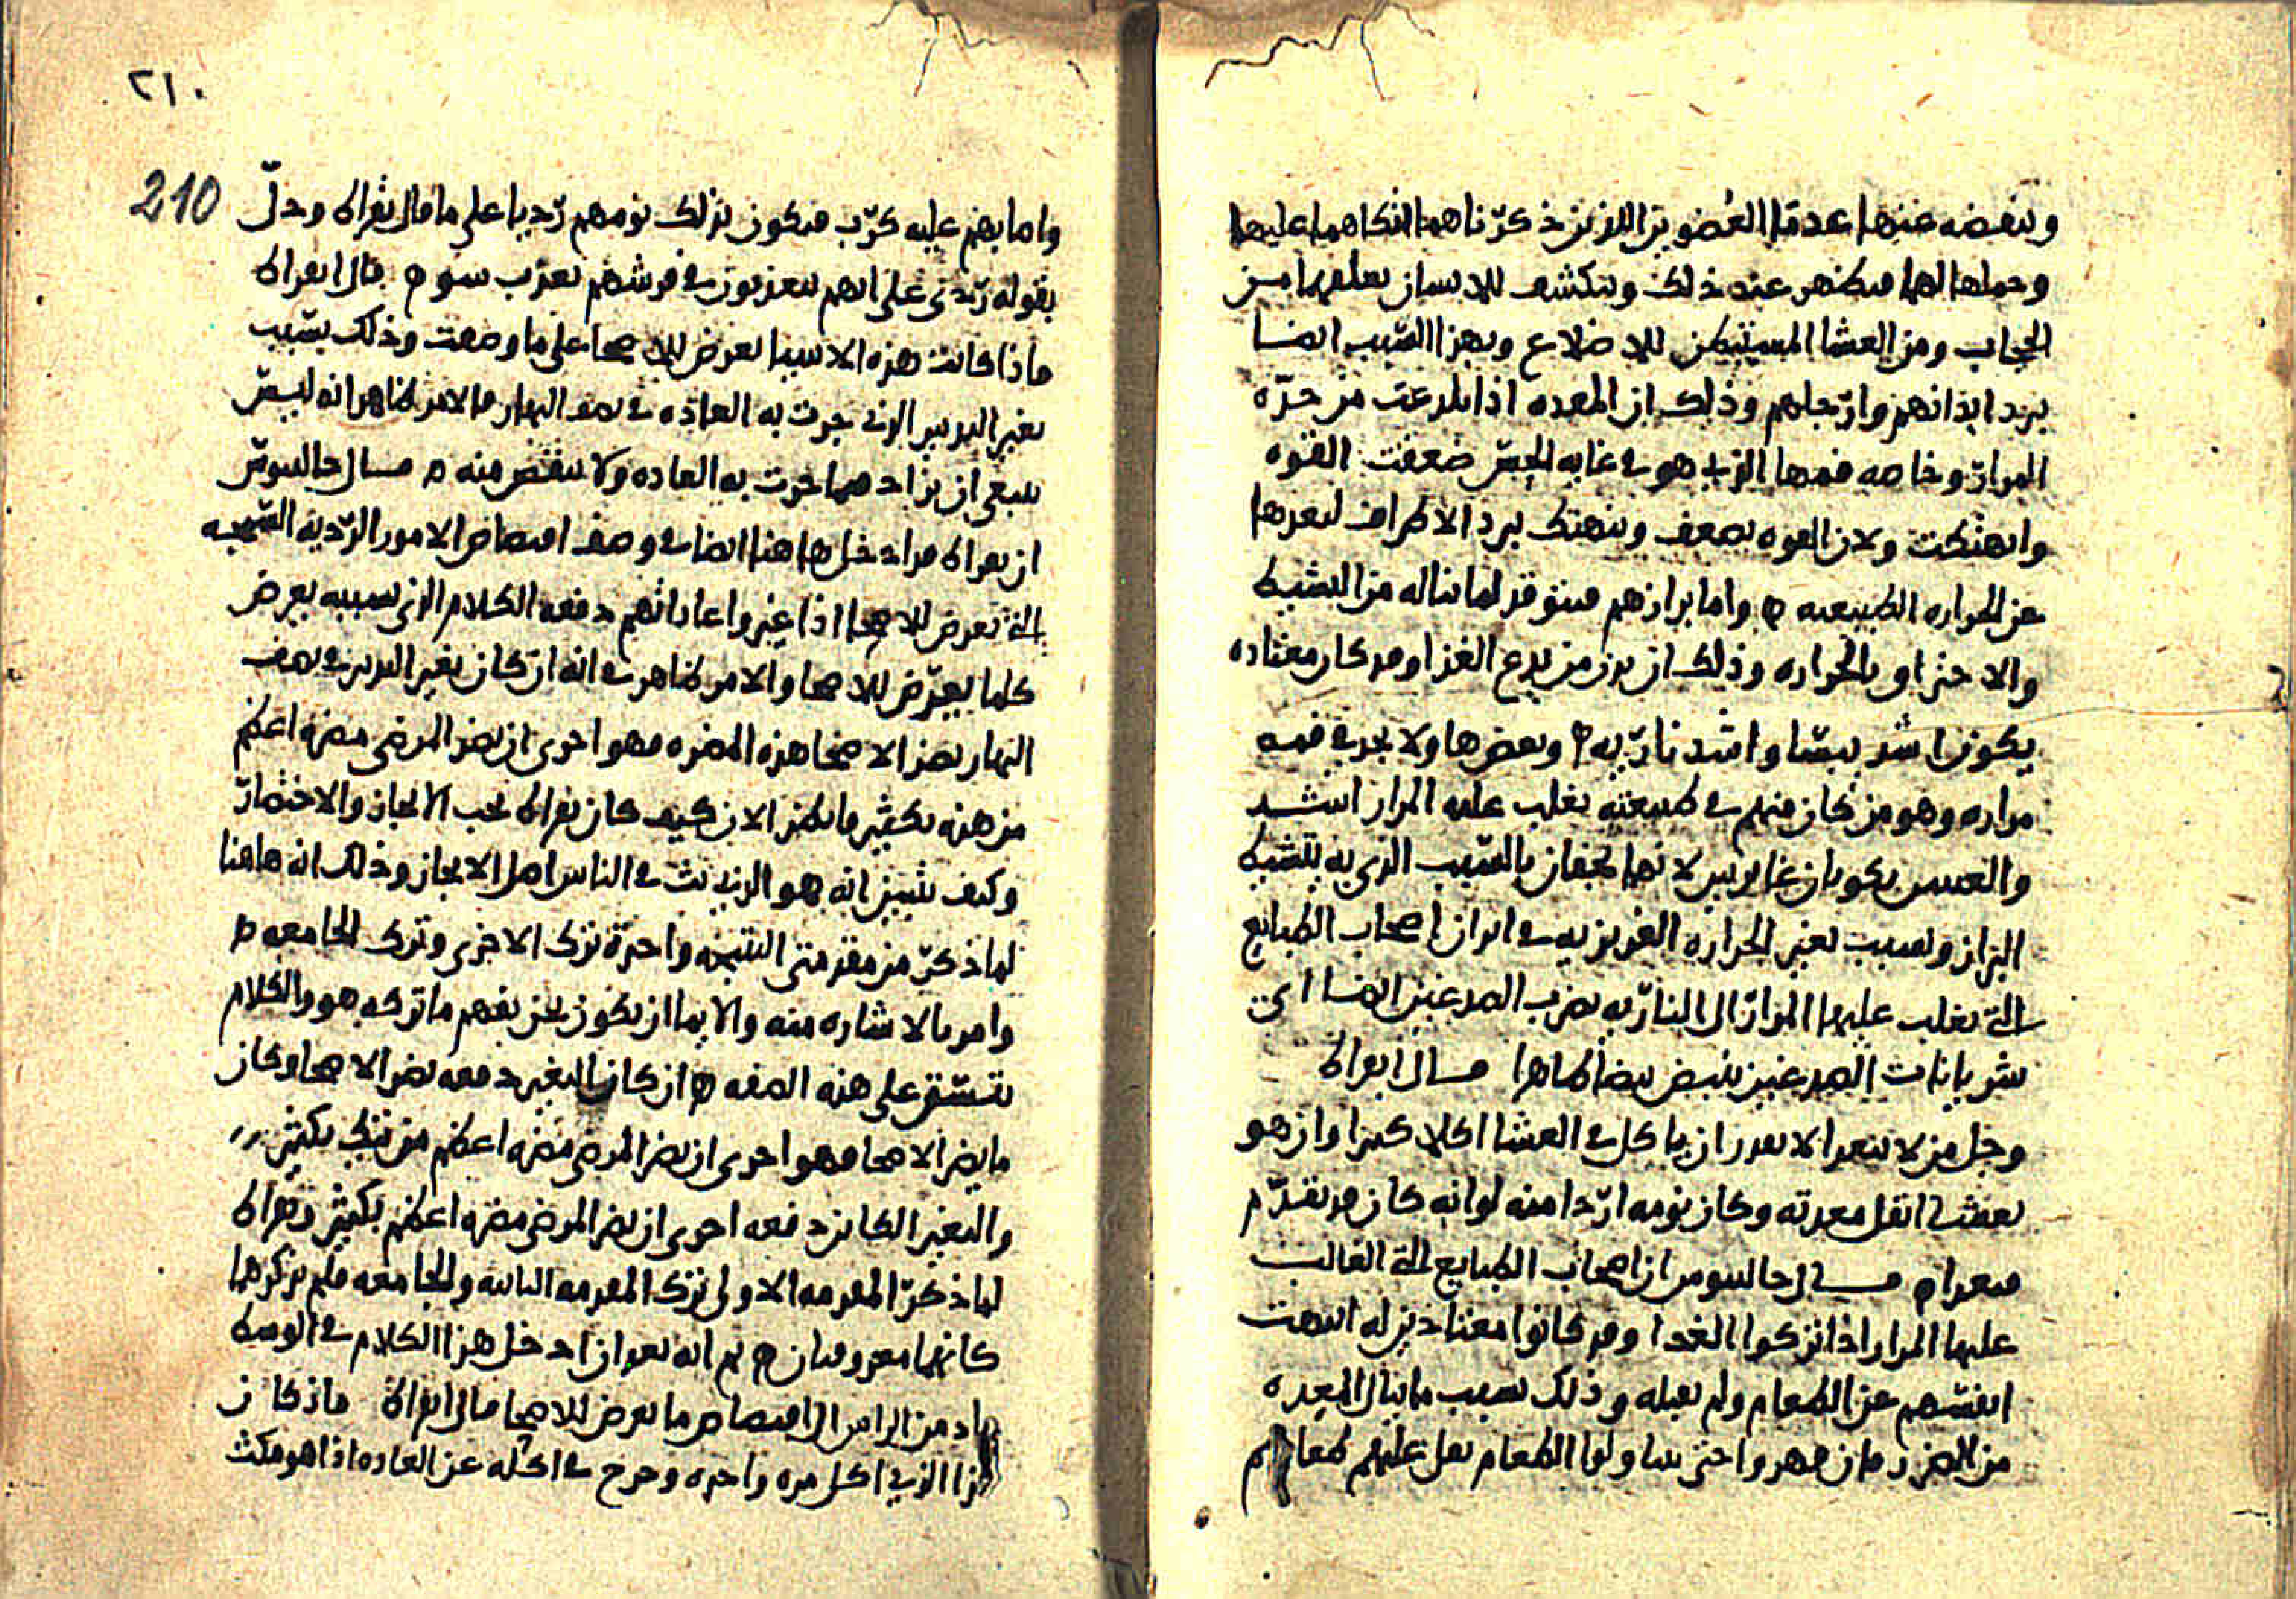 وينفضه عنها عدما العضوين اللذين ذكرناهما اتكاهما عليها
وحملها لهما فيظهر عند ذلك وينكشف للانسان تعلقهما من
الحجاب ومن الغشا المستبطن للاضلاع وبهذا السبب ايضا
يبرد ابدانهم وارجلهم وذلك ان المعده اذا لدعت من حده
المرار وخاصه فمها الذي هو في غايه الحس ضعفت القوه
وانهتكت ولان القوه تضعف وينهتك يبرد الاطراف لبعدها
عن الحراره الطبيعيه واما برازهم فيتوقد لما يناله من التشيط
والاحتراق بالحراره وذلك ان بدن من يدع الغذا وقد كان معتاده
يكون اشد يبسا واشد ناريه وبعضها ولا يجد في فمه
مراره وهو من كان منهم في طبيعته يغلب عليه المرار اشد
والعينين يكونان غايرتين لانهما يجفان بالسبب الذي به يتشيط
البراز وبسبب تغير الحراره الغريزيه في ابدان اصحاب الطبايع
التي يغلب عليها المرار الى الناريه يضرب الصدغين ايضا اي
شريانات الصدغين ينبض نبضا ظاهرا قال ابقراط
وجل من لا يتغدا لا يقدر ان ياكل في العشا اكلا كثيرا وان هو
تعشى اثقل معدته وكان نومه اردا منه لو انه كان قد تقدم
فتغدا قال جالينوس ان اصحاب الطبايع التي الغالب
عليها المرار اذا تركوا الغدا وقد كانوا معتادين له انتهت
انفسهم عن الطعام ولم تقبله وذلك بسبب ما ينال المعده
من الضرر فان قهروا حتى يتناولوا الطعام ثقل عليهم طعامهم
٢١٠
210
واما بهضم عليه كرب فيكون بذلك نومهم رديا على ما قال بقراط ودل
بقوله ردي على انهم يتعذبون في فرشهم بعذاب سو قال ابقراط
فاذا كانت هذه الاشيا تعرض للاصحا على ما وصفت وذلك بسبب
تغير التدبير الذي جرت به العاده في نصف النهار فالامر ظاهر انه ليس
ينبغي ان يزاد مما جرت به العاده ولا ينقص منه قال جالينوس
ان بقراط قد ادخل هاهنا ايضا في وصف اقتصاص الامور الرديه السمجه
التي تعرض للاصحا اذا غيروا عاداتهم دفعه الكلام الذي بسببه يعرض
كلما يعرض للاصحا والامر ظاهر في انه ان كان تغير التدبير في نصف
النهار يضر الاصحا هذه المضره فهو احرى ان يضر المرضى مضره اعظم
من هذه بكثير فانظر الان كيف كان بقراط يحب الايجاز والاختصار
وكيف تبين انه هو الذي بث في الناس اصل الايجاز وذلك انه هاهنا
لما ذكر من مقدمتي النتيجه واحدة ترك الاخرى وترك الجامعه
وامر بالاشاره منه والايما ان يكون نحن نفهم ما تركه هو والكلام
يتسق على هذه الصفه ان كان التغير دفعه يضر الاصحا وكان
ما يضر الاصحا فهو احرى ان يضر المرضى مضره اعظم من تلك بكثير
والتغير الكاين دفعه احرى ان يضر المرضى مضره اعظم بكثير وبقراط
لما ذكر المقدمه الاولى ترك المقدمه الثانيه والجامعه فلم يذكرهما
كانهما معروفتان ثم انه بعد ان ادخل هذا الكلام في الوسط
عاد من الراس الى اقتصاص ما يعرض للاصحا قال ابقراط فان كان
هذا الذي اكل مره واحده وخرج في اكله عن العاده اذا هو مكث